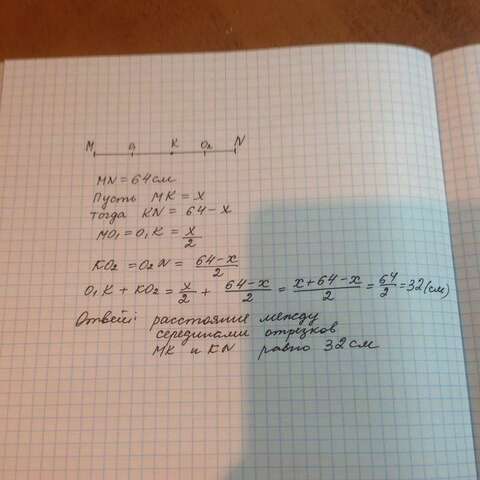 M O₁ K O₂ N
MN = 64 см
Пусть MK = x
тогда KN = 64 - x
MO₁ = O₁K = x/2
KO₂ = O₂N = (64 - x)/2
O₁K + KO₂ = x/2 + (64 - x)/2 = (x + 64 - x)/2 = 64/2 = 32 (см)
Ответ: расстояние между
серединами отрезков
MK и KN равно 32 см